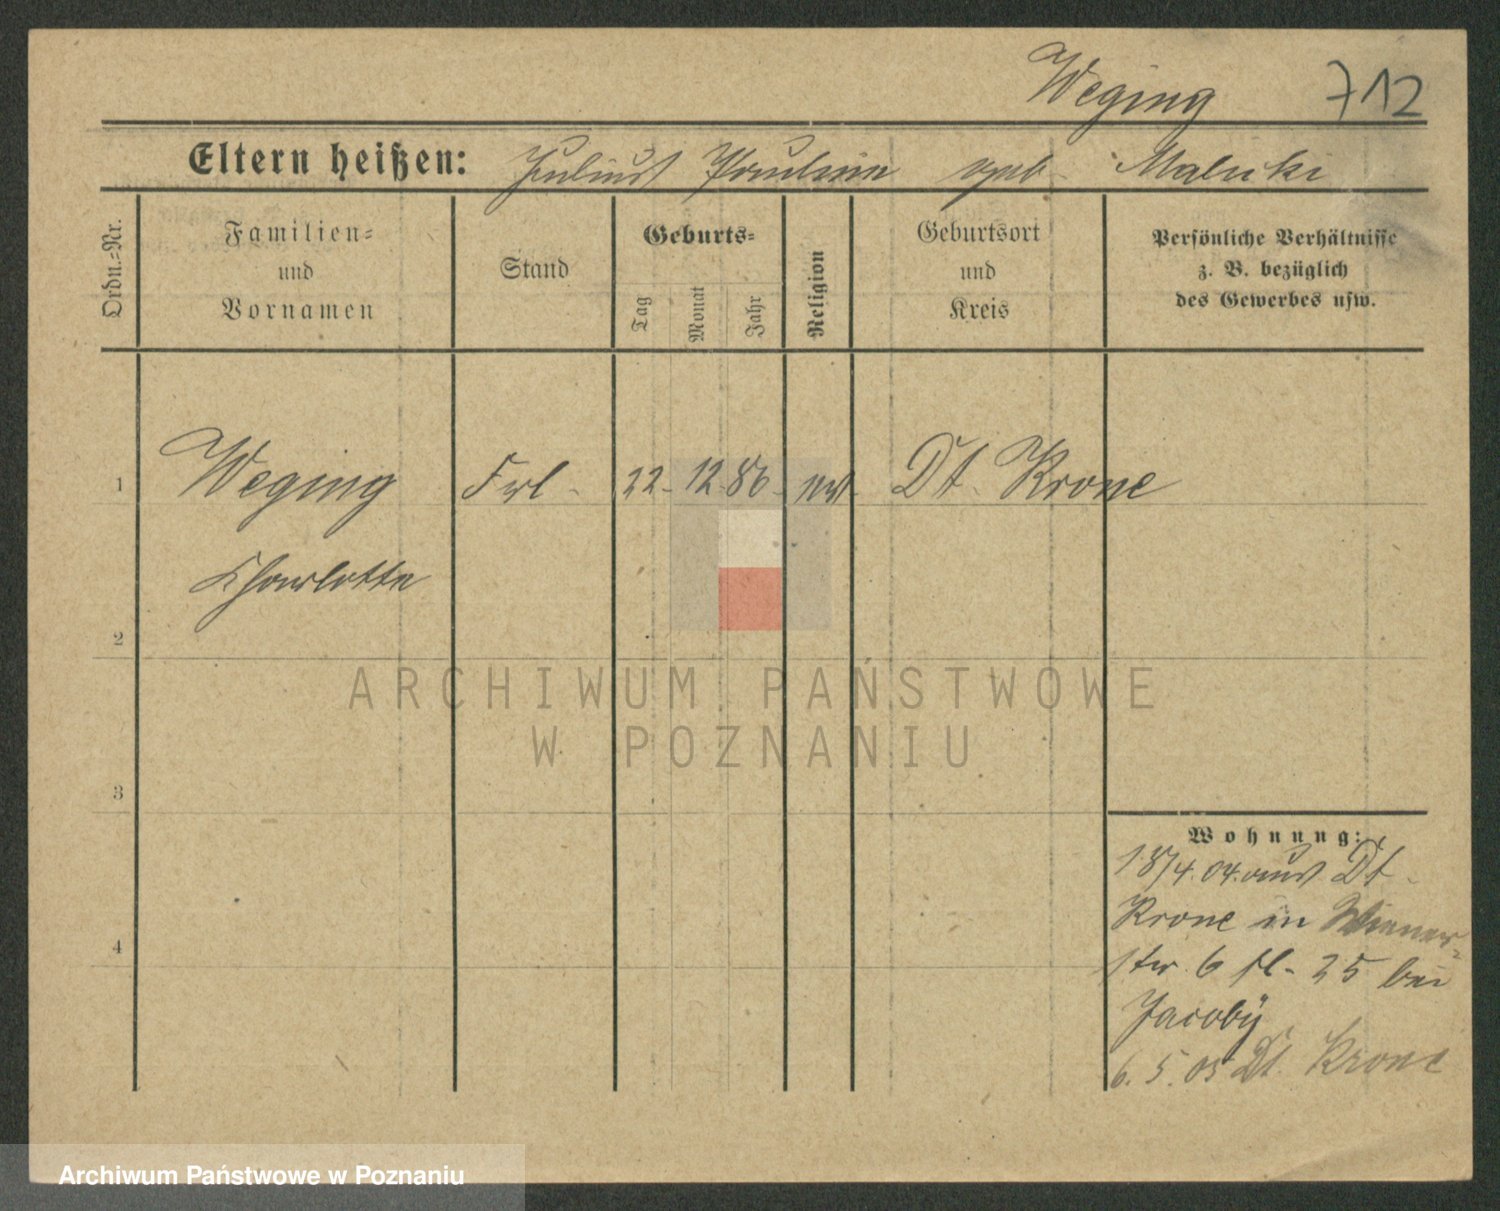 Weging 712
Eltern heißen: Julius Pauline geb. Malicki
Ordn.-Nr.
Familien-
und
Vornamen
Stand
Geburts-
Tag
Monat
Jahr
Religion
Geburtsort
und
Kreis
Persönliche Verhältnisse
z. B. bezüglich
des Gewerbes usw.
1 Weging Frl. 22. 12. 86 Dt. Krone
Charlotte
2
ARCHIWUM PAŃSTWOWE
W POZNANIU
3
Wohnung:
18/4. 04. aus Dt.
Krone in Wiener-
4
str. 6 fl. 25 bei
Jacoby
6. 5. 05 Dt. Krone
Archiwum Państwowe w Poznaniu